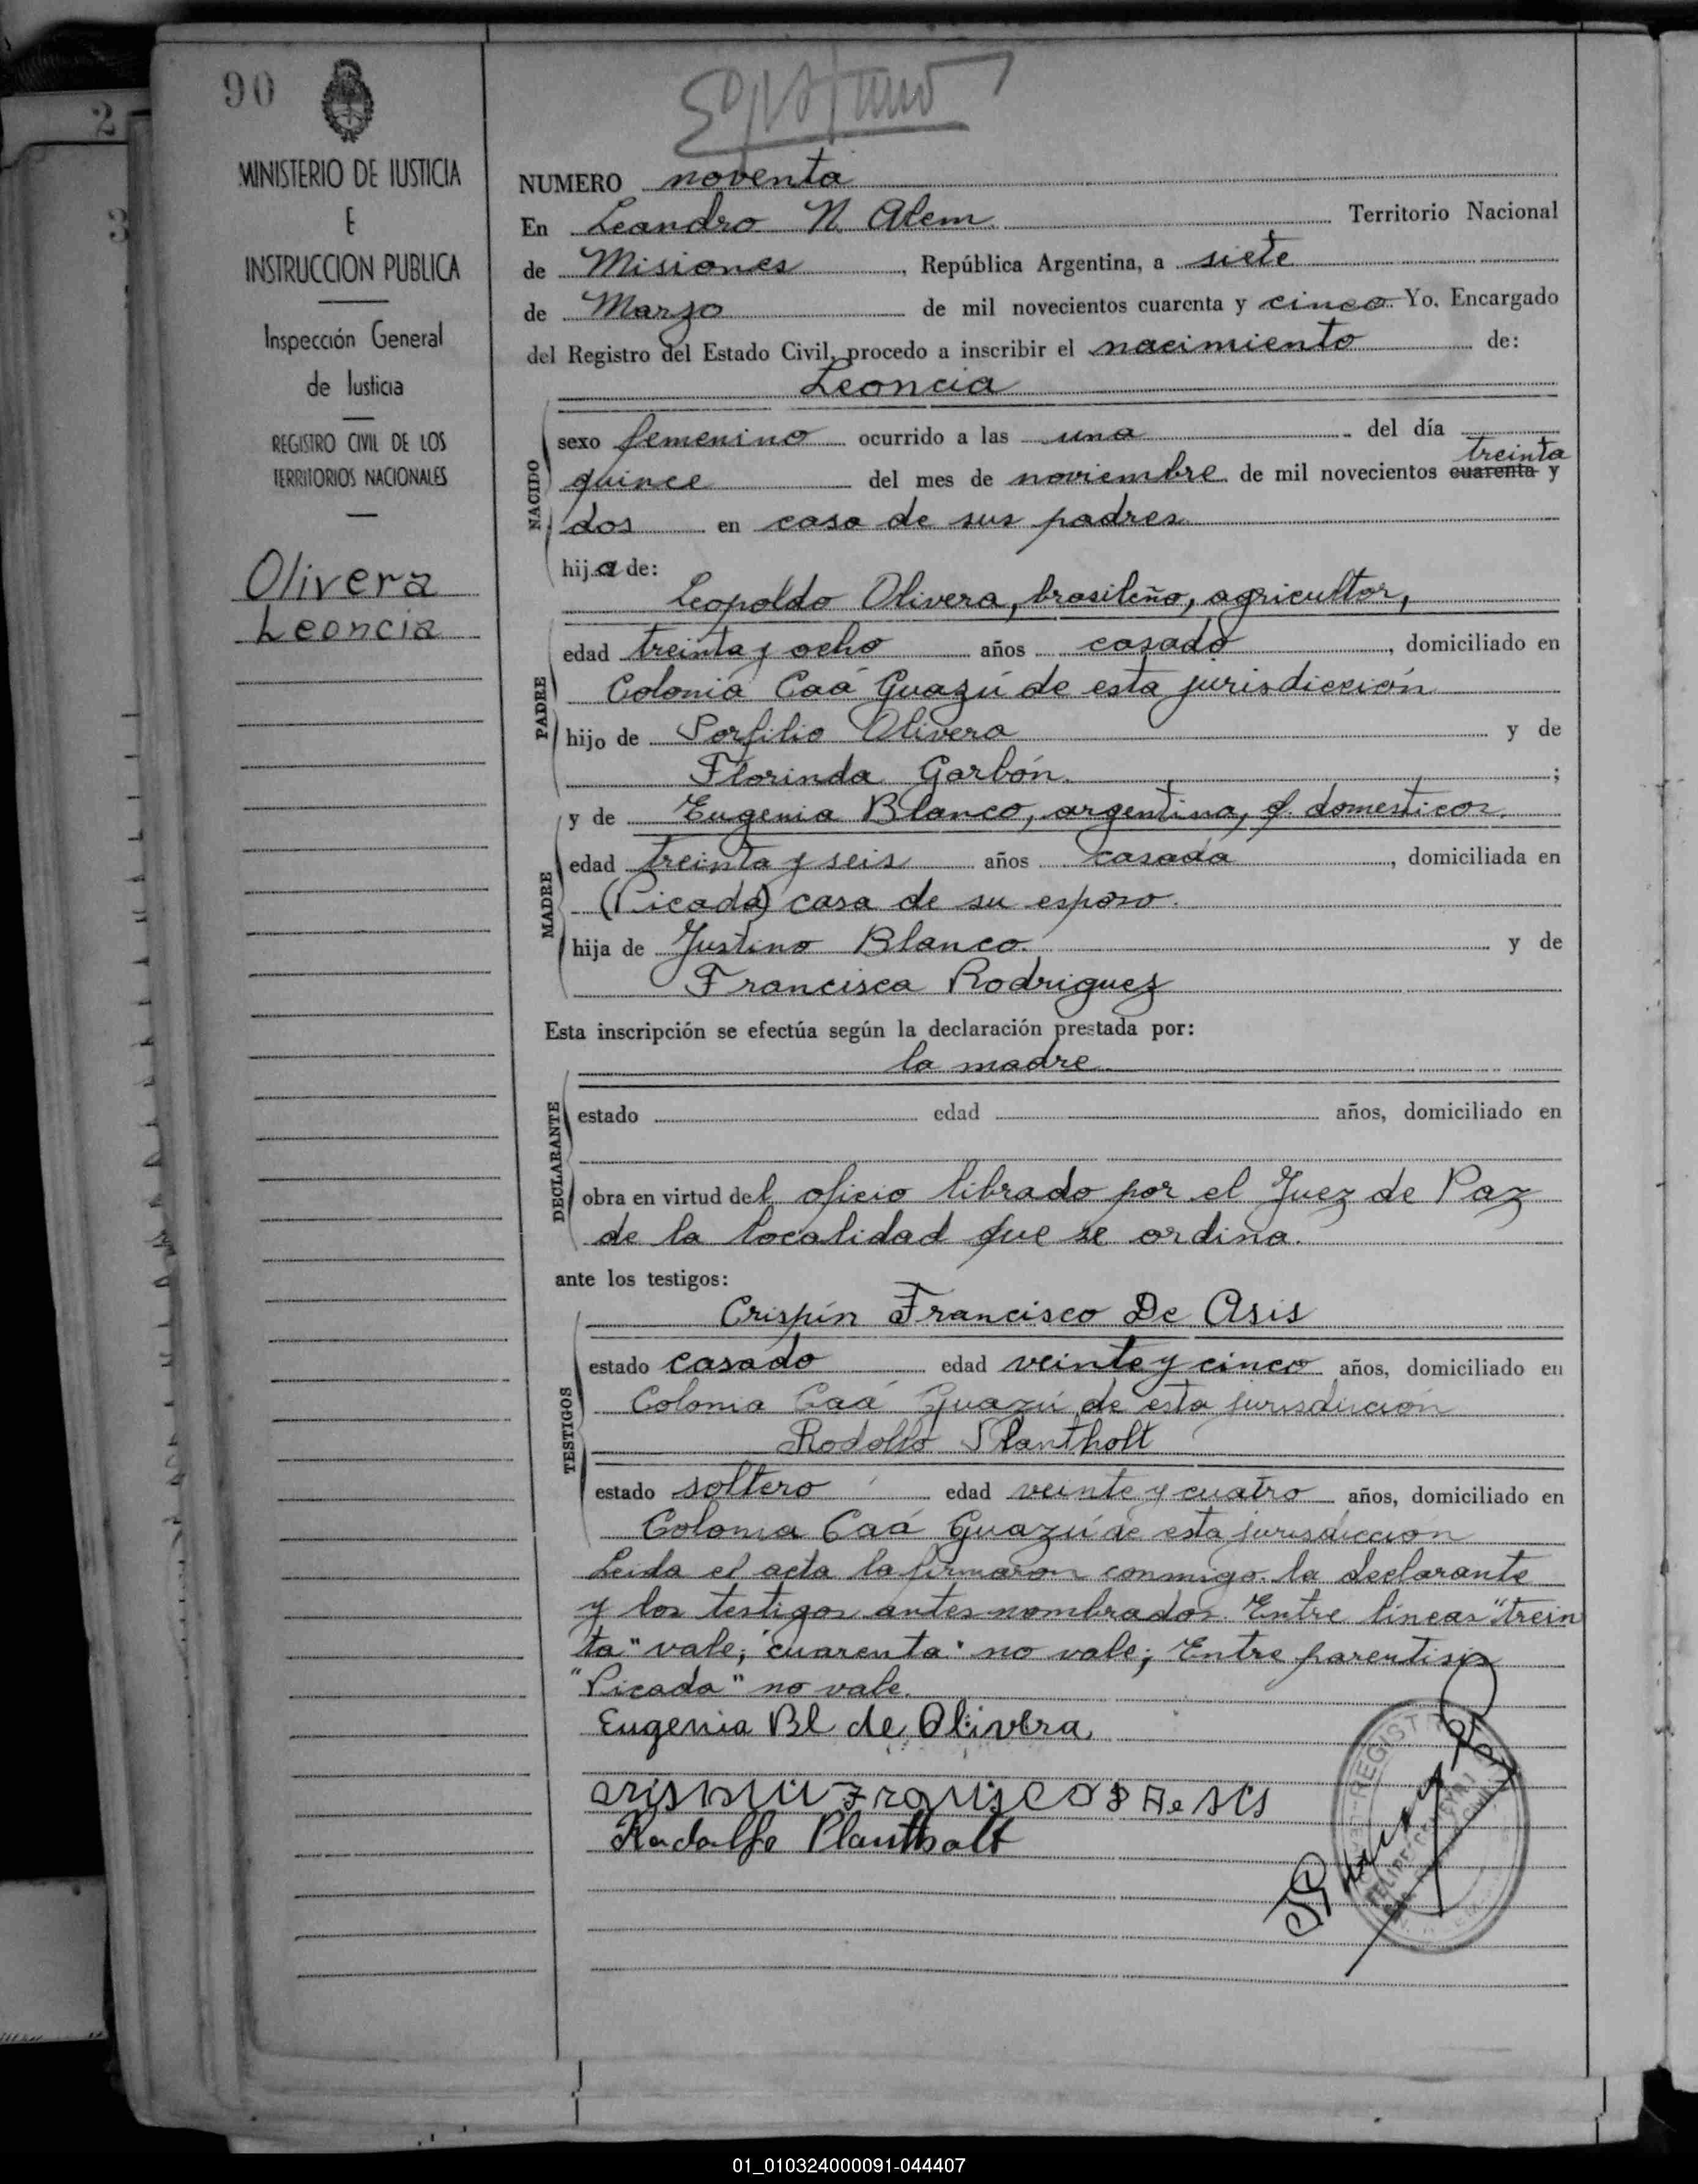 90
MINISTERIO DE JUSTICIA
E
INSTRUCCION PUBLICA
Inspección General
de Justicia
REGISTRO CIVIL DE LOS
TERRITORIOS NACIONALES
Olivera
Leoncia
NUMERO noventa
En Leandro N. Alem. Territorio Nacional
de Misiones, República Argentina, a siete
de Marzo de mil novecientos cuarenta y cinco. Yo, Encargado
del Registro del Estado Civil, procedo a inscribir el nacimiento de:
Leoncia
NACIDO
sexo femenino ocurrido a las una del día
treinta
quince del mes de noviembre de mil novecientos cuarenta y
dos en casa de sus padres.
hija de:
Leopoldo Olivera, brasileño, agricultor,
PADRE
edad treinta y ocho años casado, domiciliado en
Colonia Caá Guazú de esta jurisdicción
hijo de Porfilio Olivera y de
Florinda Garbón. ;
MADRE
y de Eugenia Blanco, argentina, q. domesticos.
edad treinta y seis años casada, domiciliada en
(Picada) casa de su esposo.
hija de Justino Blanco. y de
Francisca Rodriguez
Esta inscripción se efectúa según la declaración prestada por:
la madre.
DECLARANTE
estado edad años, domiciliado en
obra en virtud del oficio librado por el Juez de Paz
de la localidad que se ordina.
ante los testigos:
Crispín Francisco De Asis
TESTIGOS
estado casado edad veinte y cinco años, domiciliado en
Colonia Caá Guazú de esta jurisdicción
Rodolfo Plantholt
estado soltero edad veinte y cuatro años, domiciliado en
Colonia Caá Guazú de esta jurisdicción
Leida el acta la firmaron conmigo la declarante
y los testigos antes nombrados. Entre líneas "trein
ta" vale; "cuarenta" no vale; Entre parentisis
"Picada" no vale.
Eugenia Bl de Olivera
Rodolfo Plantholt
REGISTR
01_010324000091-044407